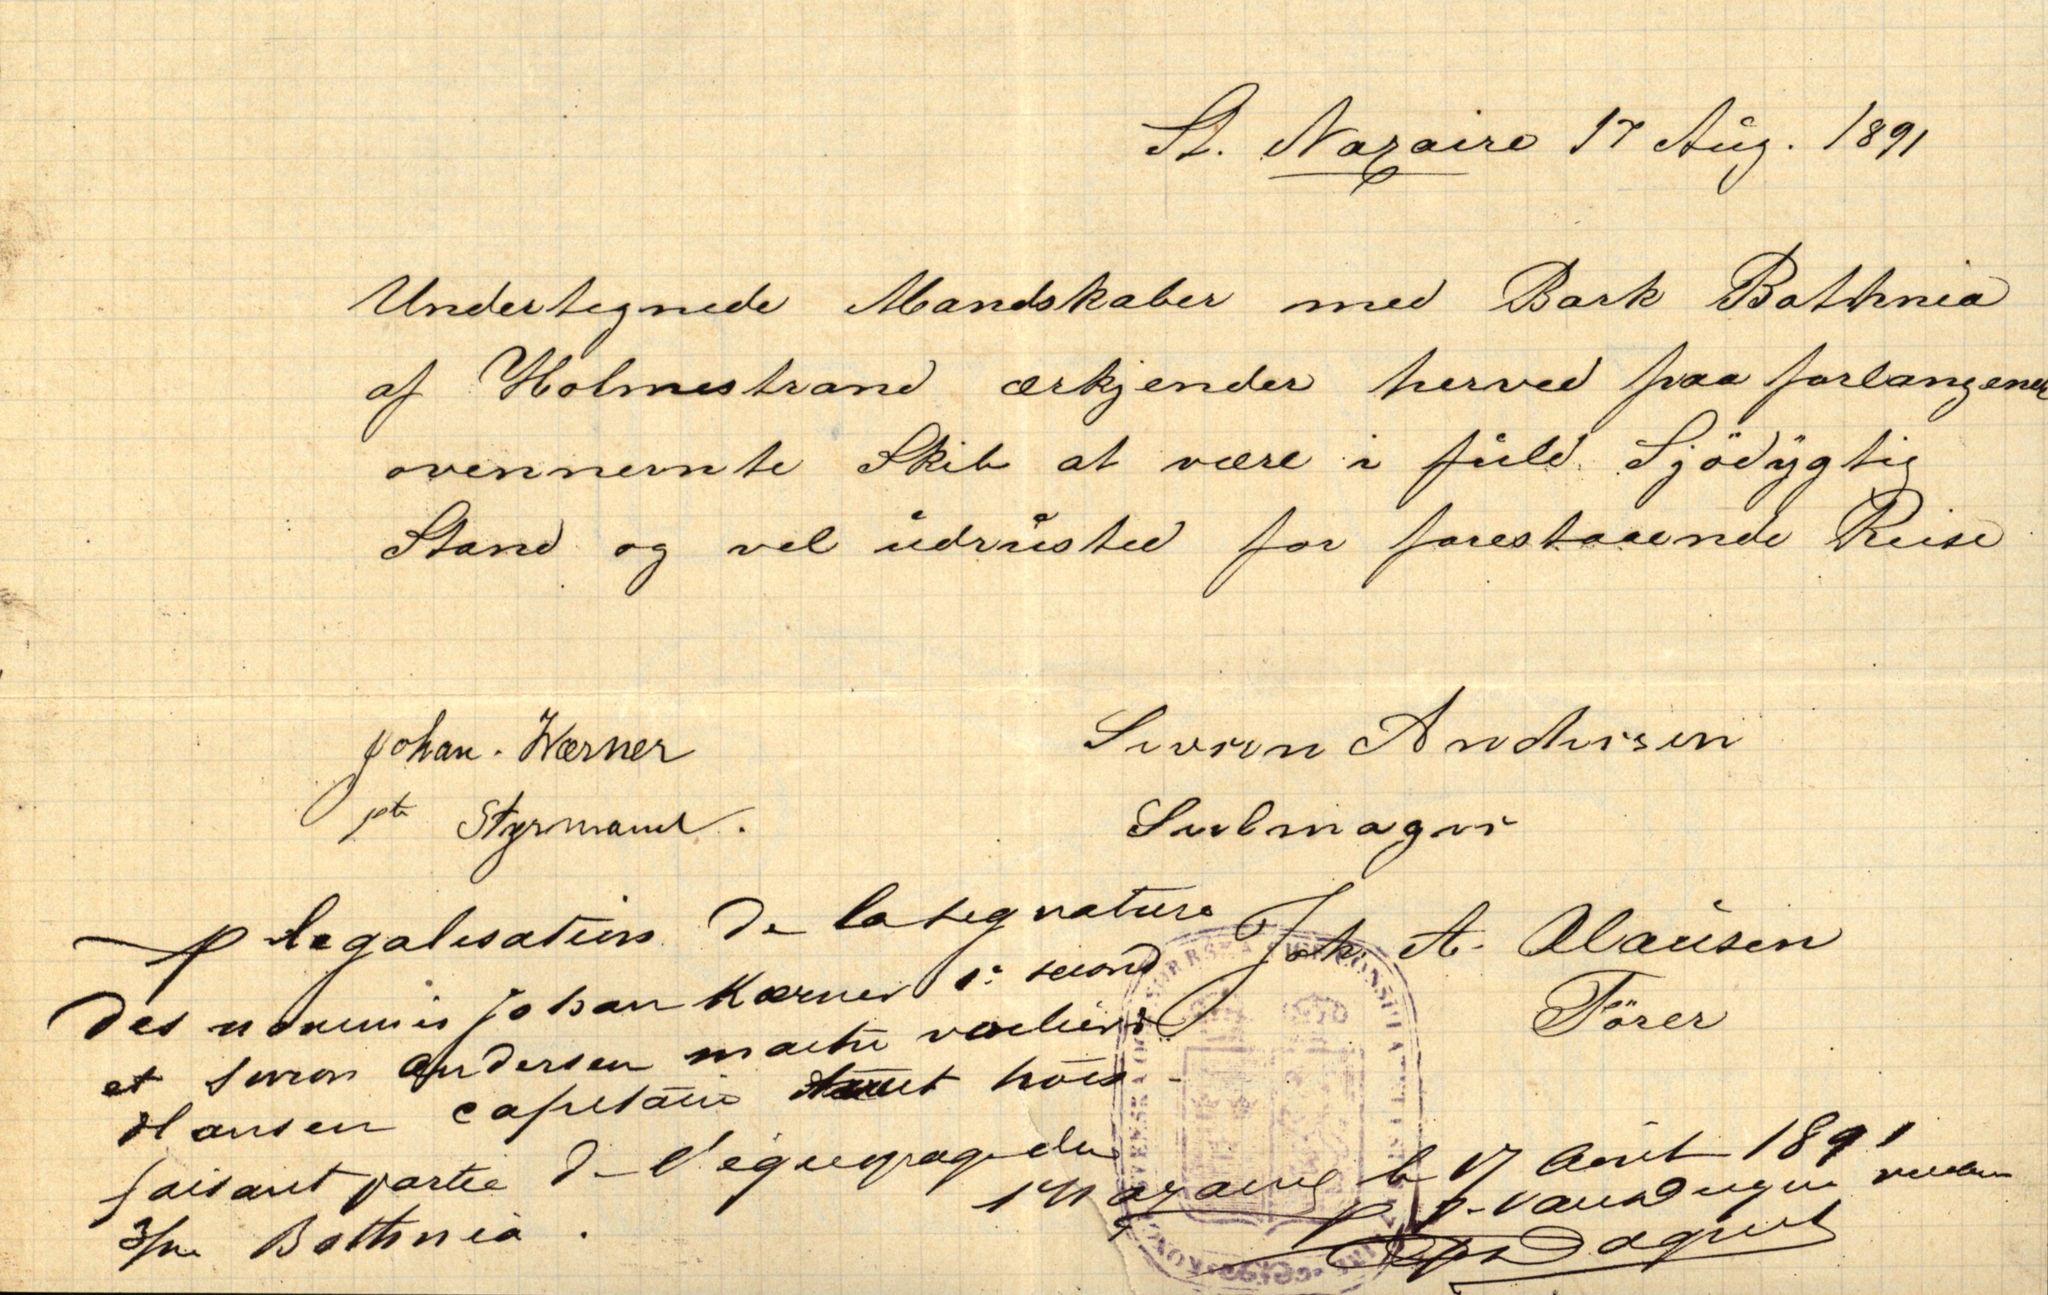 St. Nazaire 17 Aug. 1891
Undertegnede Mandskaber med Bark Bothnia
af Holmestrand ærkjender herved paa forlangende
ovennevnte Skib at være i fuld Sjödygtig
Stand og vel udrusted for forestaaende Reise
Johan Wærner
Styrmand.
Sevren Andersen
Seilmager
Joh. A. Clausen
Förer
p legalisation de la signature
des nommés Johan Kærner 1r second
et Sevren Andersen maitre voilier &
Hansen capitaine tous trois
faisant partie de l'équipage du
3/m Bothnia.
St Nazaire le 17 Août 1891